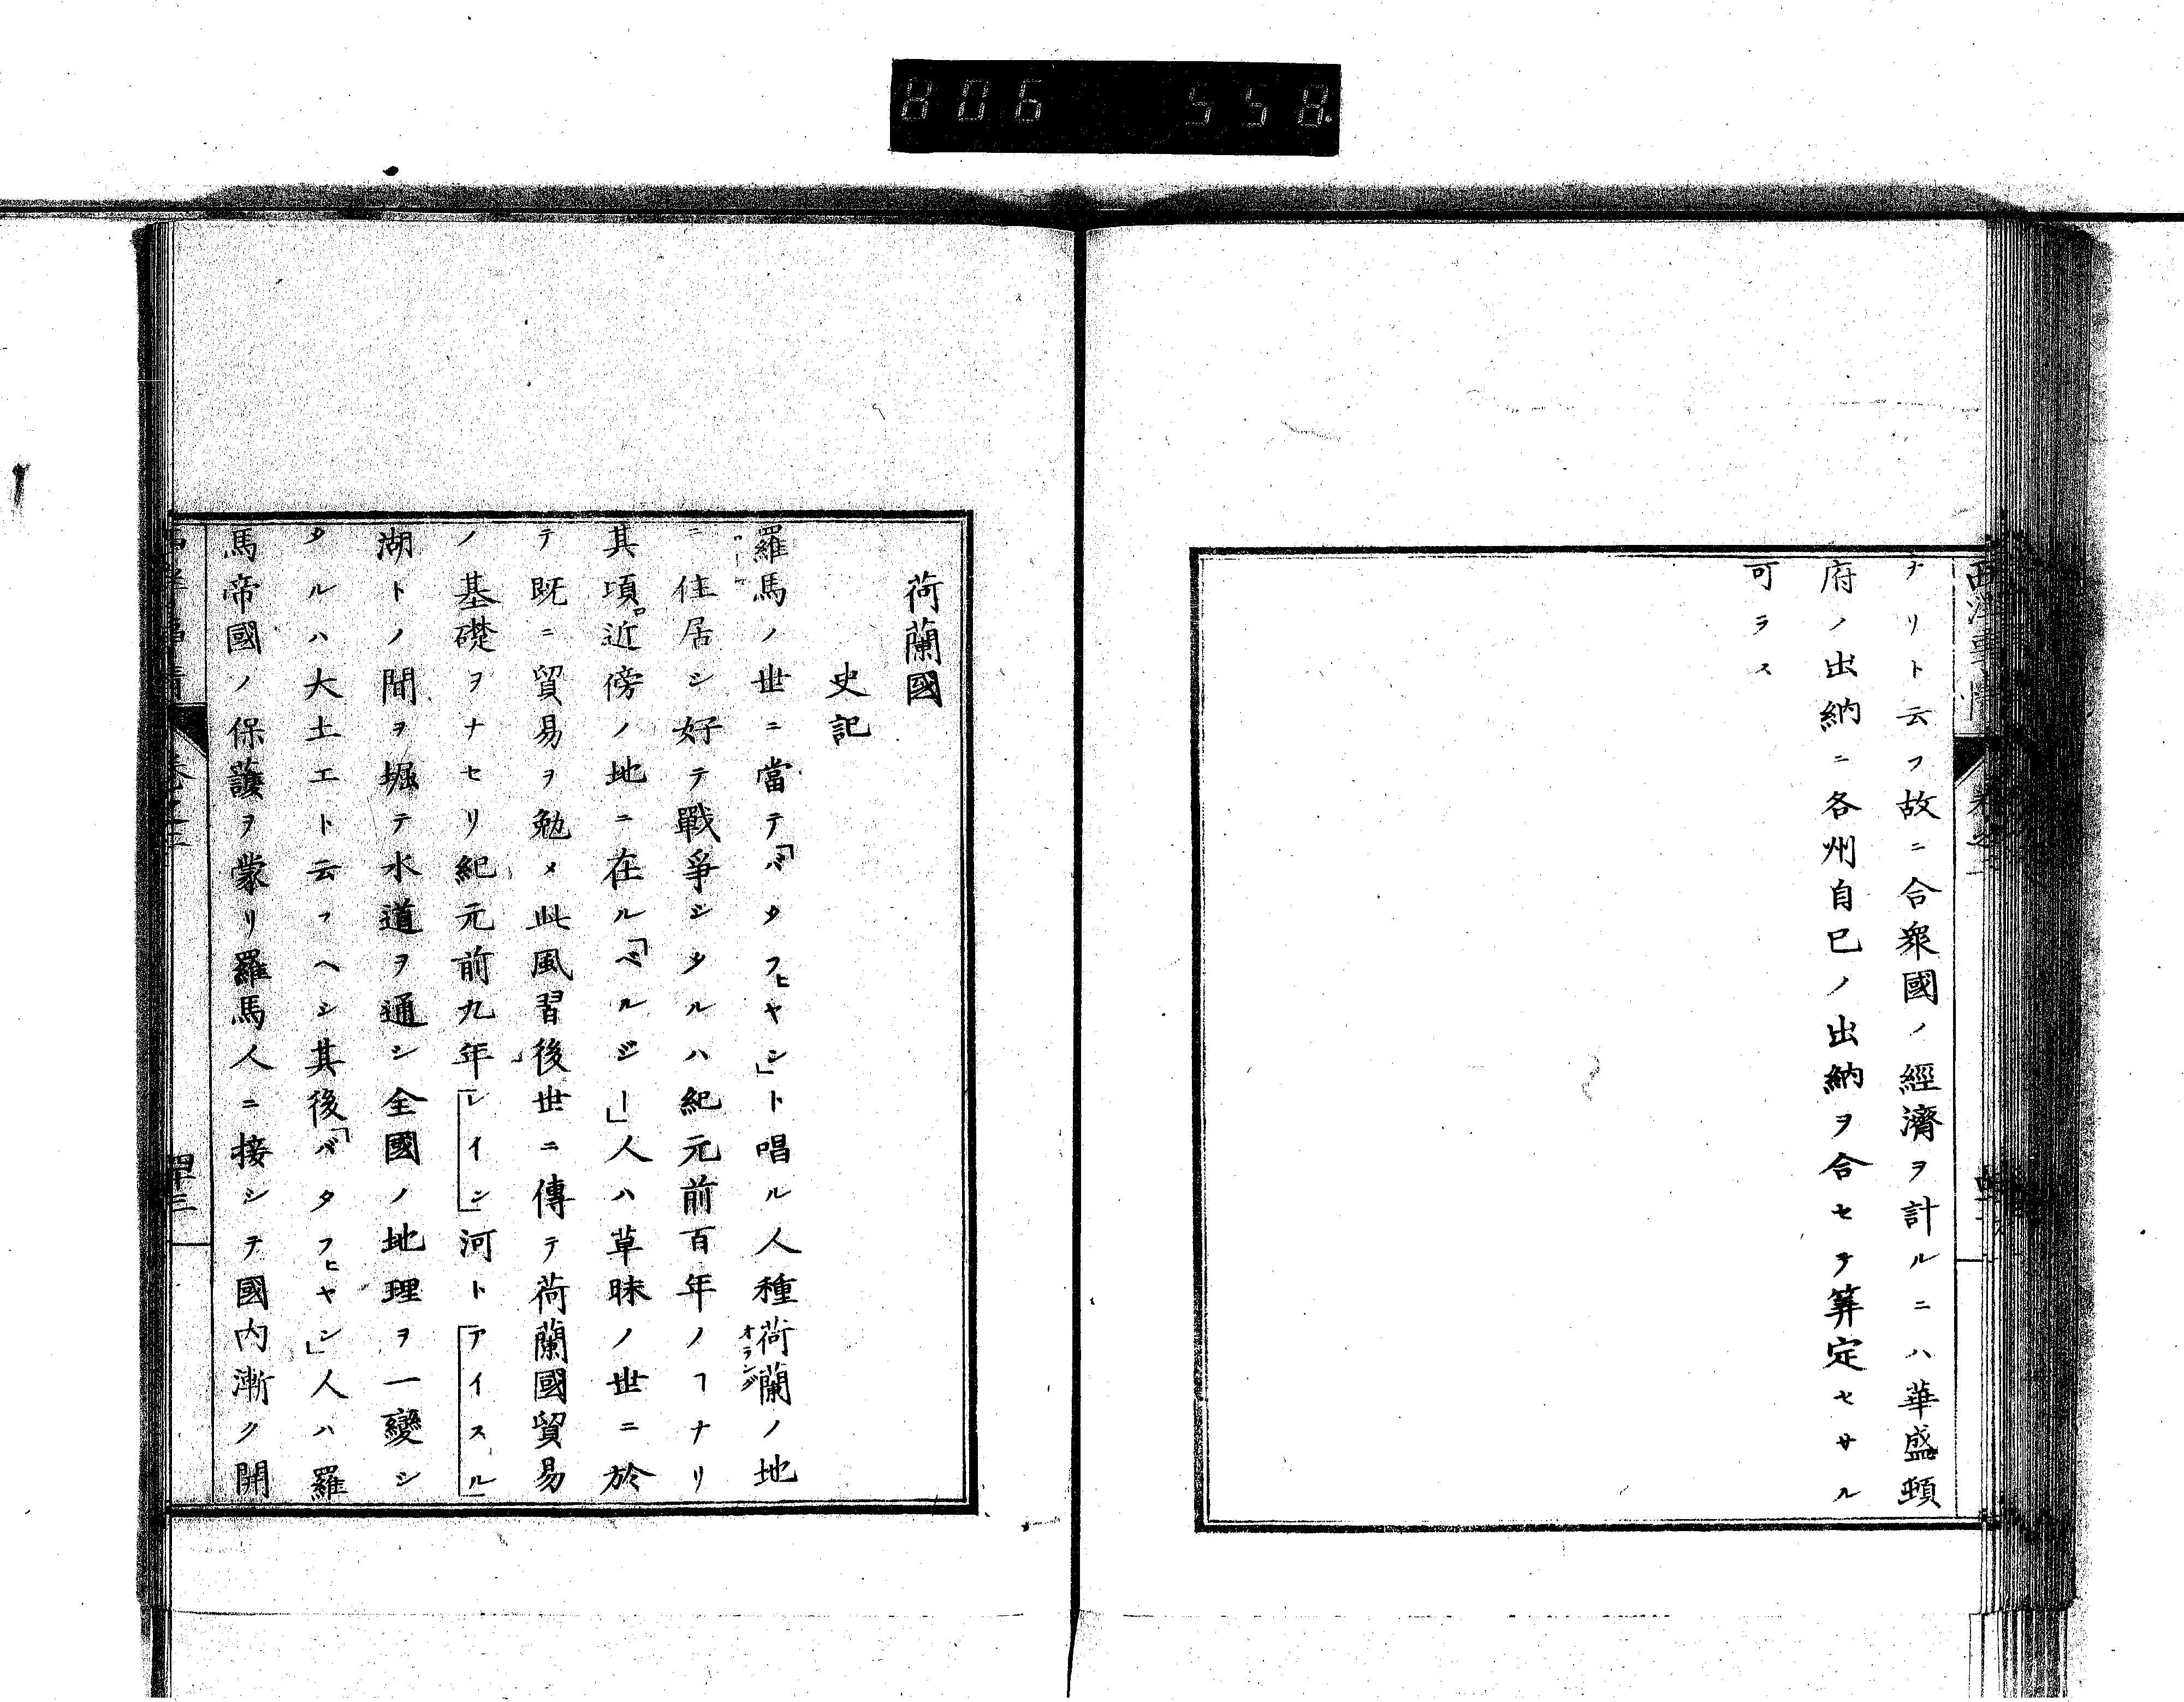 806 558
ナリト云フ故ニ合衆國ノ經濟ヲ計ルニハ華盛頓
府ノ出納ニ各州自己ノ出納ヲ合セテ算定セサル
可ラス
荷蘭國
史記
羅馬ノ世ニ當テ「バタフヒヤン」ト唱ル人種荷蘭ノ地
オランダ
ニ住居シ好テ戰爭シタルハ紀元前百年ノヿナリ
其頃近傍ノ地ニ在ル「ベルジー」人ハ草昧ノ世ニ於
テ既ニ貿易ヲ勉メ此風習後世ニ傳テ荷蘭國貿易
ノ基礎ヲナセリ紀元前九年「レイン」河ト「アイスル」
湖トノ間ヲ堀テ水道ヲ通シ全國ノ地理ヲ一變シ
タルハ大土エト云フヘシ其後「バタフヒヤン」人ハ羅
馬帝國ノ保護ヲ蒙リ羅馬人ニ接シテ國内漸ク開